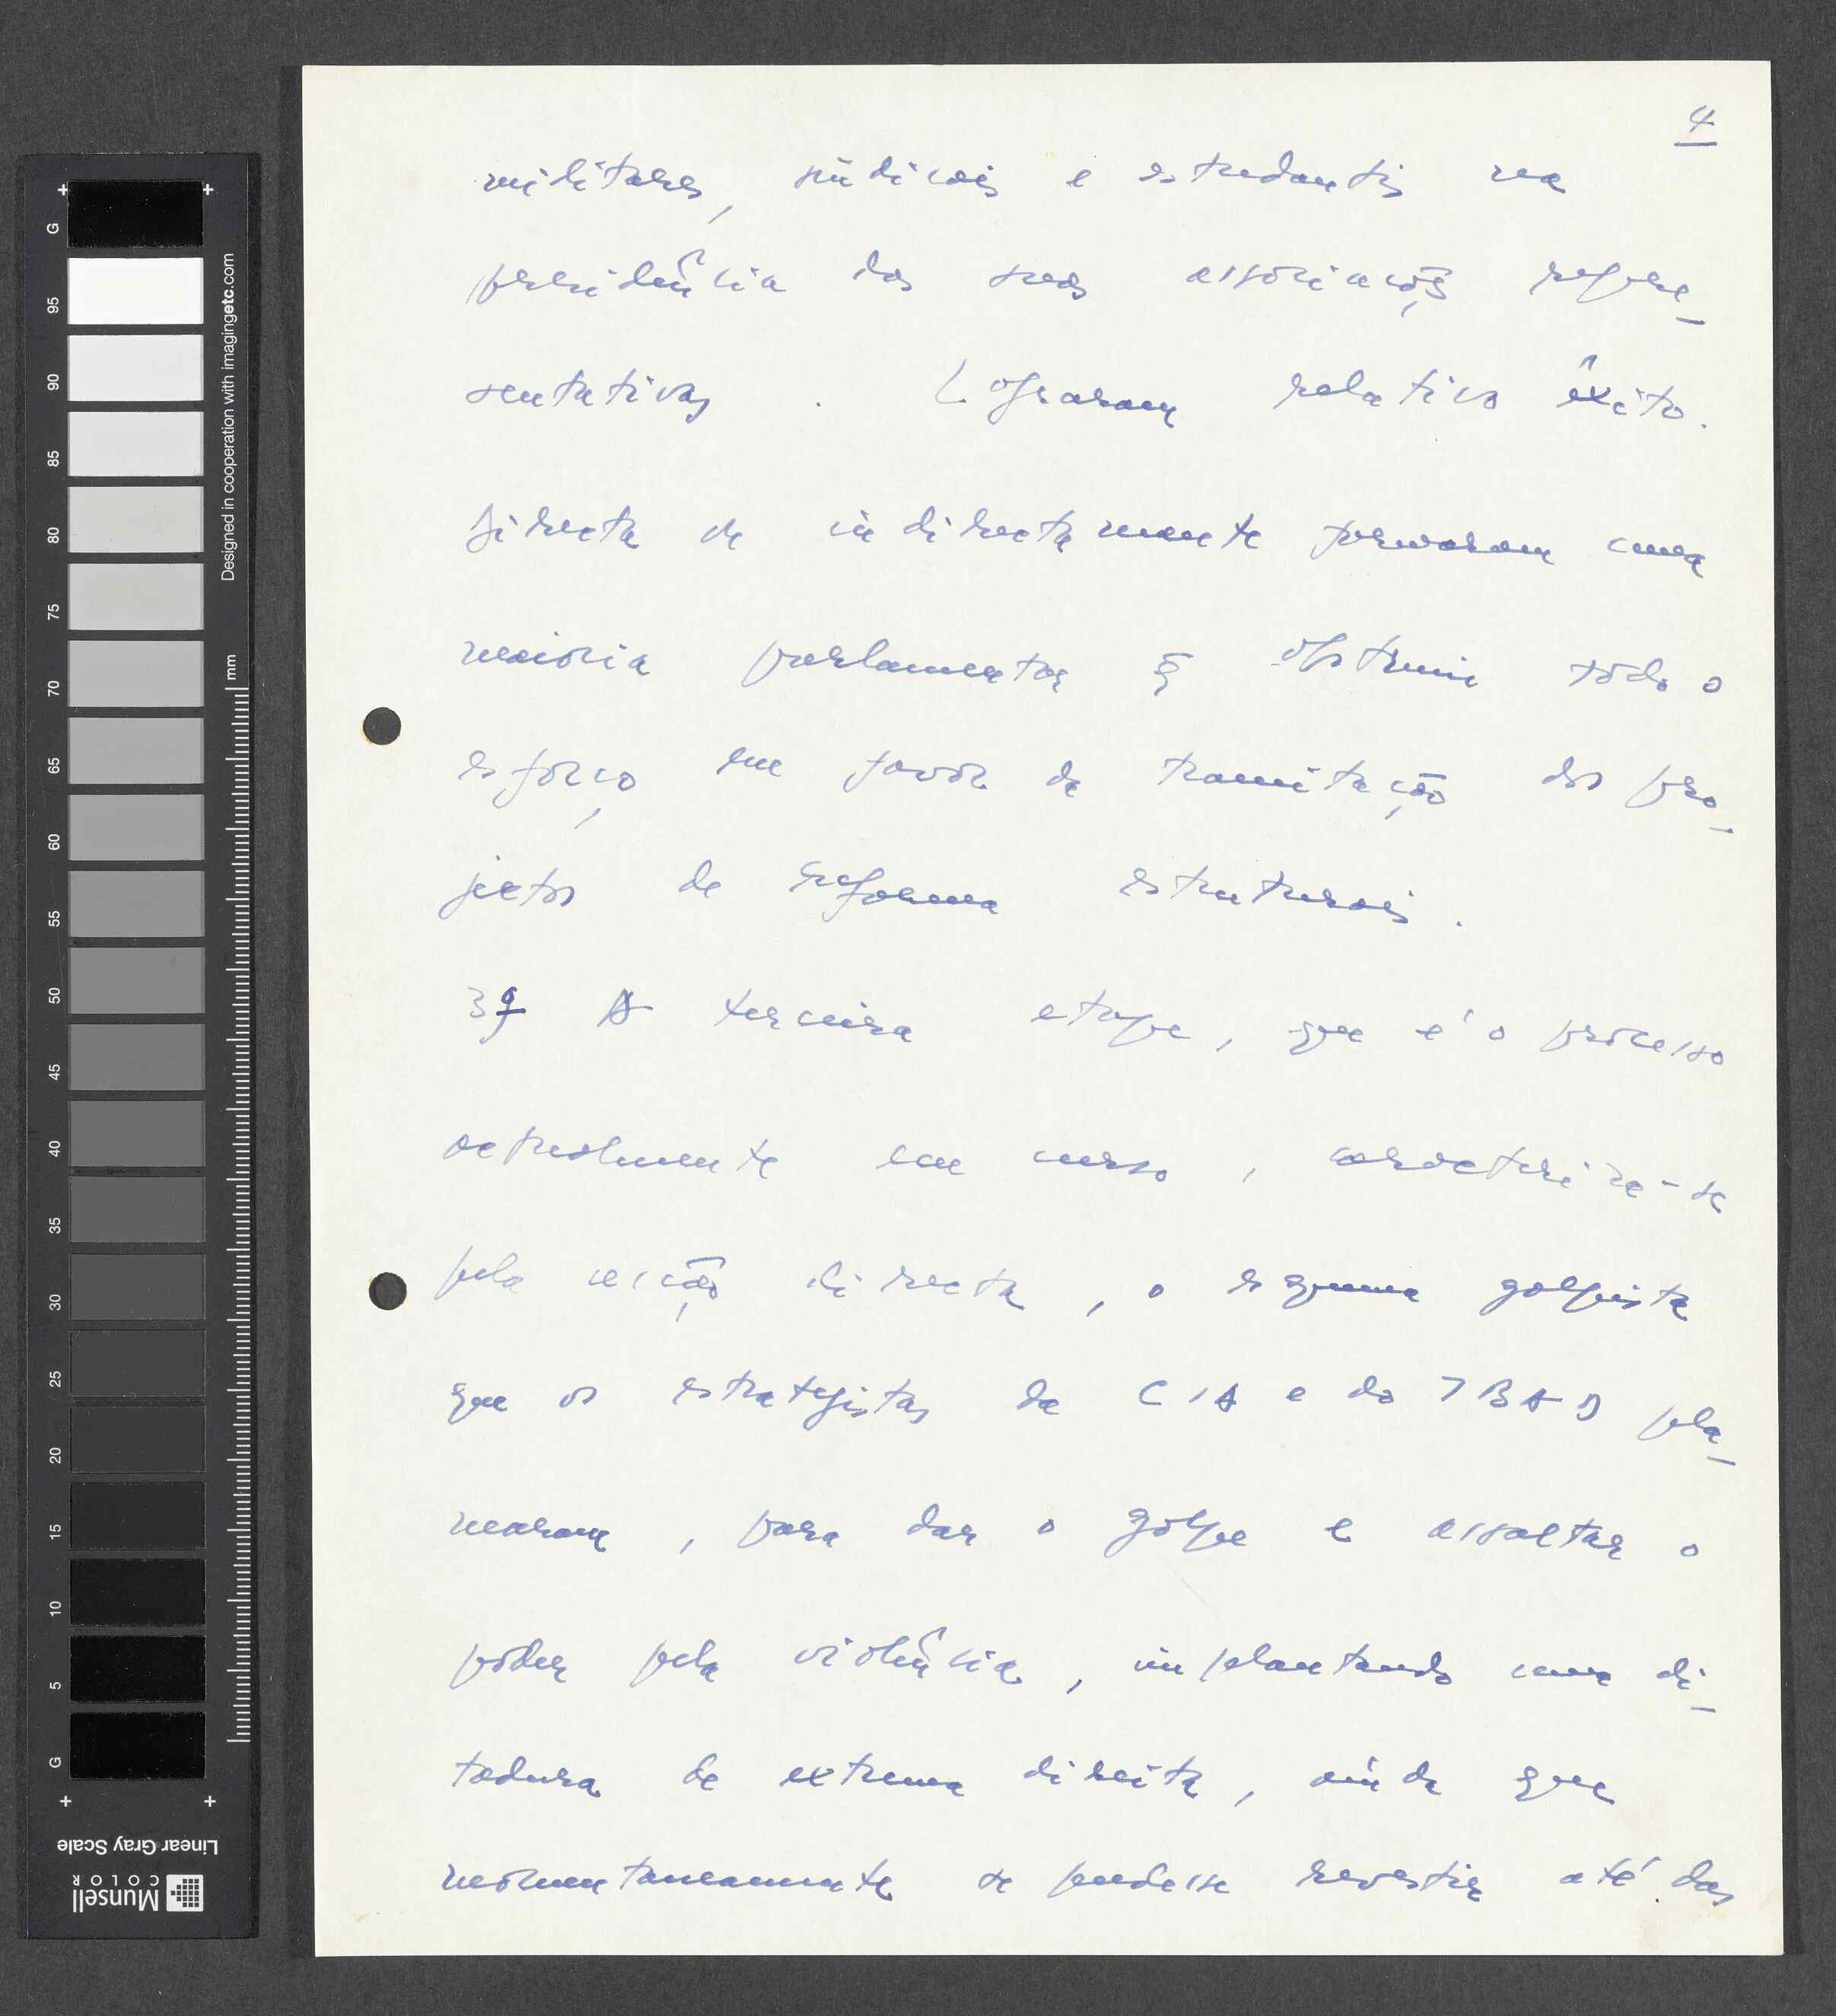 4
militares, sindicais e estudantis na
presidência das suas associações repre_
sentativas . Lograram relativo êxito.
Directa ou indirectamente formaram uma
maioria parlamentar q̃ obstruiu todo o
esforço em favor da tramitação dos pro_
jectos de reforma estruturais.
3º A terceira etapa, que é o processo
actualmente em curso, caracteriza-se
pela acção directa, o esquema golpista
que os estrategistas da CIA e do IBAD pla_
nearam, para dar o golpe e assaltar o
poder pela violência, implantando uma di_
tadura de extrema direita, ainda que
momentaneamente se pudesse revestir até das
G 95 90 85 80 75 70 65 60 55 50 45 40 35 30 25 20 15 10 5 G
Designed in cooperation with imagingetc.com
mm
Linear Gray Scale
Munsell
COLOR